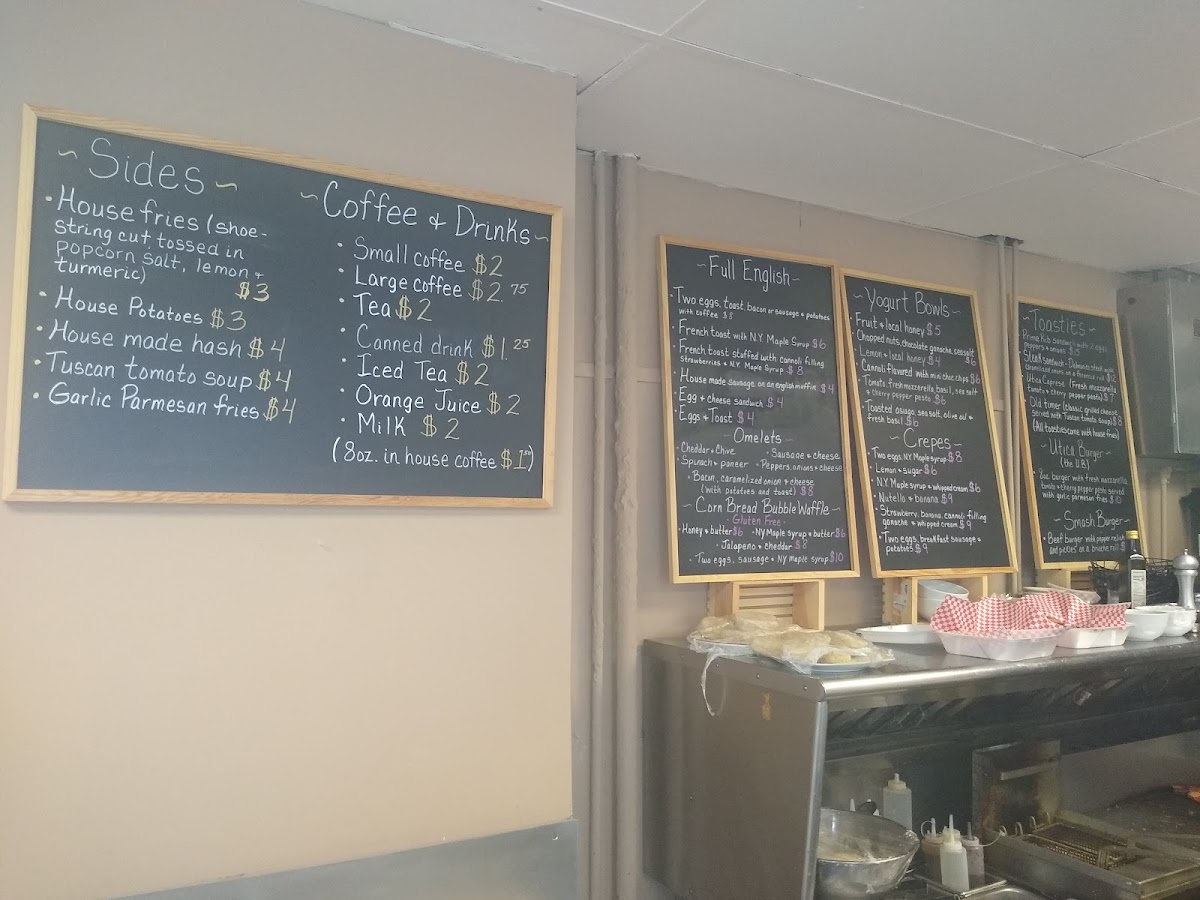 ~ Sides ~
• House fries (shoe-
string cut, tossed in
popcorn salt, lemon +
turmeric)
$3
• House Potatoes $3
• House made hash $4
• Tuscan tomato soup $4
• Garlic Parmesan fries $4
~ Coffee & Drinks ~
• Small coffee $2
• Large coffee $2.75
• Tea $2
• Canned drink $1.25
• Iced Tea $2
• Orange Juice $2
• Milk $2
(8oz. in house coffee $1.50)
~ Full English ~
• Two eggs, toast, bacon or sausage & potatoes
with coffee $8
• French toast with N.Y. Maple Syrup $6
• French toast stuffed with cannoli filling
strawberries & N.Y. Maple Syrup $8
• House made sausage on an english muffin $4
• Egg & cheese sandwich $4
• Eggs & Toast $4
~ Omelets ~
• Cheddar & Chive • Sausage & cheese
• Spinach & paneer • Peppers, onions & cheese
• Bacon, caramelized onion & cheese
(with potatoes and toast) $8
~ Corn Bread Bubble Waffle ~
- Gluten Free -
• Honey & butter $6 • NY Maple syrup & butter $6
• Jalapeno & cheddar $8
• Two eggs, sausage & NY Maple syrup $10
~ Yogurt Bowls ~
• Fruit & local honey $5
Chopped nuts, chocolate ganache, sea salt $6
• Lemon & local honey $4
• Cannoli flavored with mini choc. chips $6
• Tomato, fresh mozzarella, basil, sea salt
& cherry pepper pesto $6
• Toasted asiago, sea salt, olive oil &
fresh basil $6
~ Crepes ~
• Two eggs, NY Maple syrup $8
• Lemon & sugar $6
• N.Y. Maple syrup & whipped cream $6
• Nutella & banana $9
• Strawberry, banana, cannoli filling
ganache & whipped cream $9
• Two eggs, breakfast sausage &
potatoes $9
~ Toasties ~
Prime Rib sandwich with 2 eggs
peppers & onions $15
• Steak sandwich - Delmonico steak with
caramelized onions on a roll $12
• Utica Caprese (Fresh mozzarella,
tomato & cherry pepper pesto) $7
• Old timer (classic grilled cheese
served with Tuscan tomato soup) $8
(All toasties come with house fries)
~ Utica Burger ~
(the U.B.)
• 8oz burger with fresh mozzarella,
tomato & cherry pepper pesto served
with garlic parmesan fries $10
~ Smash Burger ~
• Beef burger with pepper relish
and pickles on a brioche roll $